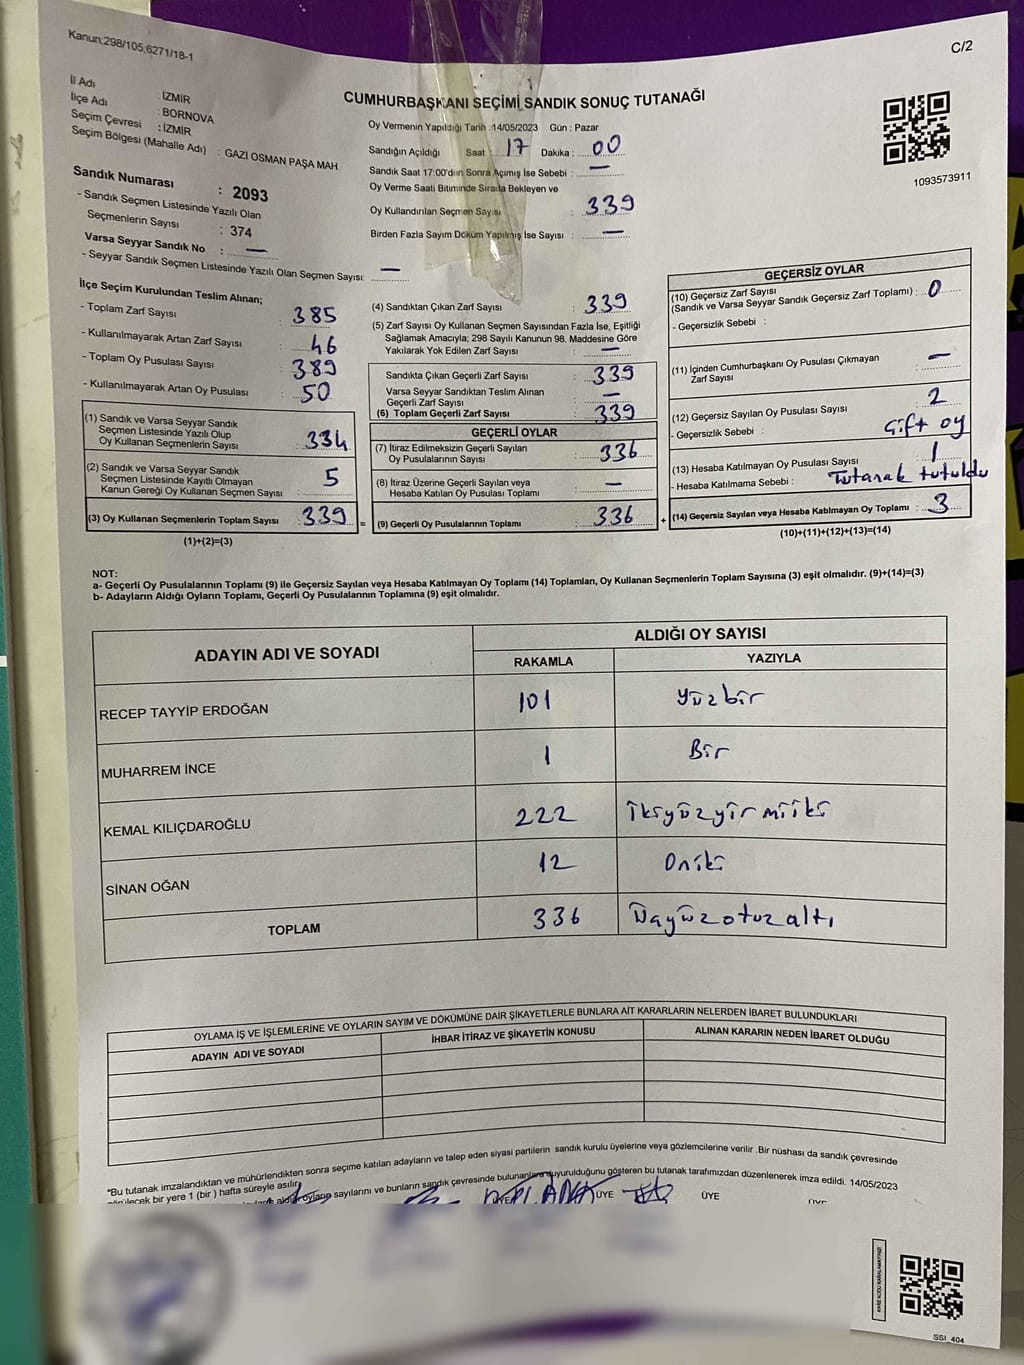 Kanun;298/105,6271/18-1
C/2
İl Adı : İZMİR
İlçe Adı : BORNOVA
Seçim Çevresi : İZMİR
Seçim Bölgesi (Mahalle Adı) : GAZİ OSMAN PAŞA MAH.
Sandık Numarası : 2093
- Sandık Seçmen Listesinde Yazılı Olan
Seçmenlerin Sayısı : 374
Varsa Seyyar Sandık No : —
- Seyyar Sandık Seçmen Listesinde Yazılı Olan Seçmen Sayısı: —
CUMHURBAŞKANI SEÇİMİ SANDIK SONUÇ TUTANAĞI
Oy Vermenin Yapıldığı Tarih :14/05/2023 Gün : Pazar
Sandığın Açıldığı Saat : 17 Dakika : 00
Sandık Saat 17:00'den Sonra Açımış İse Sebebi : —
Oy Verme Saati Bitiminde Sırada Bekleyen ve
Oy Kullandırılan Seçmen Sayısı : 339
Birden Fazla Sayım Döküm Yapılmış İse Sayısı : —
1093573911
İlçe Seçim Kurulundan Teslim Alınan;
- Toplam Zarf Sayısı : 385
- Kullanılmayarak Artan Zarf Sayısı : 46
- Toplam Oy Pusulası Sayısı : 389
- Kullanılmayarak Artan Oy Pusulası : 50
(1) Sandık ve Varsa Seyyar Sandık
Seçmen Listesinde Yazılı Olup
Oy Kullanan Seçmenlerin Sayısı : 334
(2) Sandık ve Varsa Seyyar Sandık
Seçmen Listesinde Kayıtlı Olmayan
Kanun Gereği Oy Kullanan Seçmen Sayısı : 5
(3) Oy Kullanan Seçmenlerin Toplam Sayısı : 339 =
(1)+(2)=(3)
(4) Sandıktan Çıkan Zarf Sayısı : 339
(5) Zarf Sayısı Oy Kullanan Seçmen Sayısından Fazla İse, Eşitliği
Sağlamak Amacıyla; 298 Sayılı Kanunun 98. Maddesine Göre
Yakılarak Yok Edilen Zarf Sayısı : —
Sandıkta Çıkan Geçerli Zarf Sayısı : 339
Varsa Seyyar Sandıktan Teslim Alınan
Geçerli Zarf Sayısı : —
(6) Toplam Geçerli Zarf Sayısı : 339
GEÇERLİ OYLAR
(7) İtiraz Edilmeksizin Geçerli Sayılan
Oy Pusulalarının Sayısı : 336
(8) İtiraz Üzerine Geçerli Sayılan veya
Hesaba Katılan Oy Pusulası Toplamı : —
(9) Geçerli Oy Pusulalarının Toplamı : 336 +
GEÇERSİZ OYLAR
(10) Geçersiz Zarf Sayısı
(Sandık ve Varsa Seyyar Sandık Geçersiz Zarf Toplamı) : 0
- Geçersizlik Sebebi :
(11) İçinden Cumhurbaşkanı Oy Pusulası Çıkmayan
Zarf Sayısı : —
(12) Geçersiz Sayılan Oy Pusulası Sayısı : 2
- Geçersizlik Sebebi : Çift oy
(13) Hesaba Katılmayan Oy Pusulası Sayısı : 1
- Hesaba Katılmama Sebebi : Tutanak tutuldu
(14) Geçersiz Sayılan veya Hesaba Katılmayan Oy Toplamı : 3
(10)+(11)+(12)+(13)=(14)
NOT:
a- Geçerli Oy Pusulalarının Toplamı (9) ile Geçersiz Sayılan veya Hesaba Katılmayan Oy Toplamı (14) Toplamları, Oy Kullanan Seçmenlerin Toplam Sayısına (3) eşit olmalıdır. (9)+(14)=(3)
b- Adayların Aldığı Oyların Toplamı, Geçerli Oy Pusulalarının Toplamına (9) eşit olmalıdır.
ADAYIN ADI VE SOYADI
ALDIĞI OY SAYISI
RAKAMLA YAZIYLA
RECEP TAYYİP ERDOĞAN 101 Yüzbir
MUHARREM İNCE 1 Bir
KEMAL KILIÇDAROĞLU 222 İkiyüzyirmiiki
SİNAN OĞAN 12 Oniki
TOPLAM 336 Üçyüzotuzaltı
OYLAMA İŞ VE İŞLEMLERİNE VE OYLARIN SAYIM VE DÖKÜMÜNE DAİR ŞİKAYETLERLE BUNLARA AİT KARARLARIN NELERDEN İBARET BULUNDUKLARI
ADAYIN ADI VE SOYADI İHBAR İTİRAZ VE ŞİKAYETİN KONUSU ALINAN KARARIN NEDEN İBARET OLDUĞU
*Bu tutanak imzalandıktan ve mühürlendikten sonra seçime katılan adayların ve talep eden siyasi partilerin sandık kurulu üyelerine veya gözlemcilerine verilir .Bir nüshası da sandık çevresinde
görülecek bir yere 1 (bir ) hafta süreyle asılır.
aldığı oyların sayılarını ve bunların sandık çevresinde bulunanlara duyurulduğunu gösteren bu tutanak tarafımızdan düzenlenerek imza edildi. 14/05/2023
ÜYE ÜYE ÜYE
SSI_404